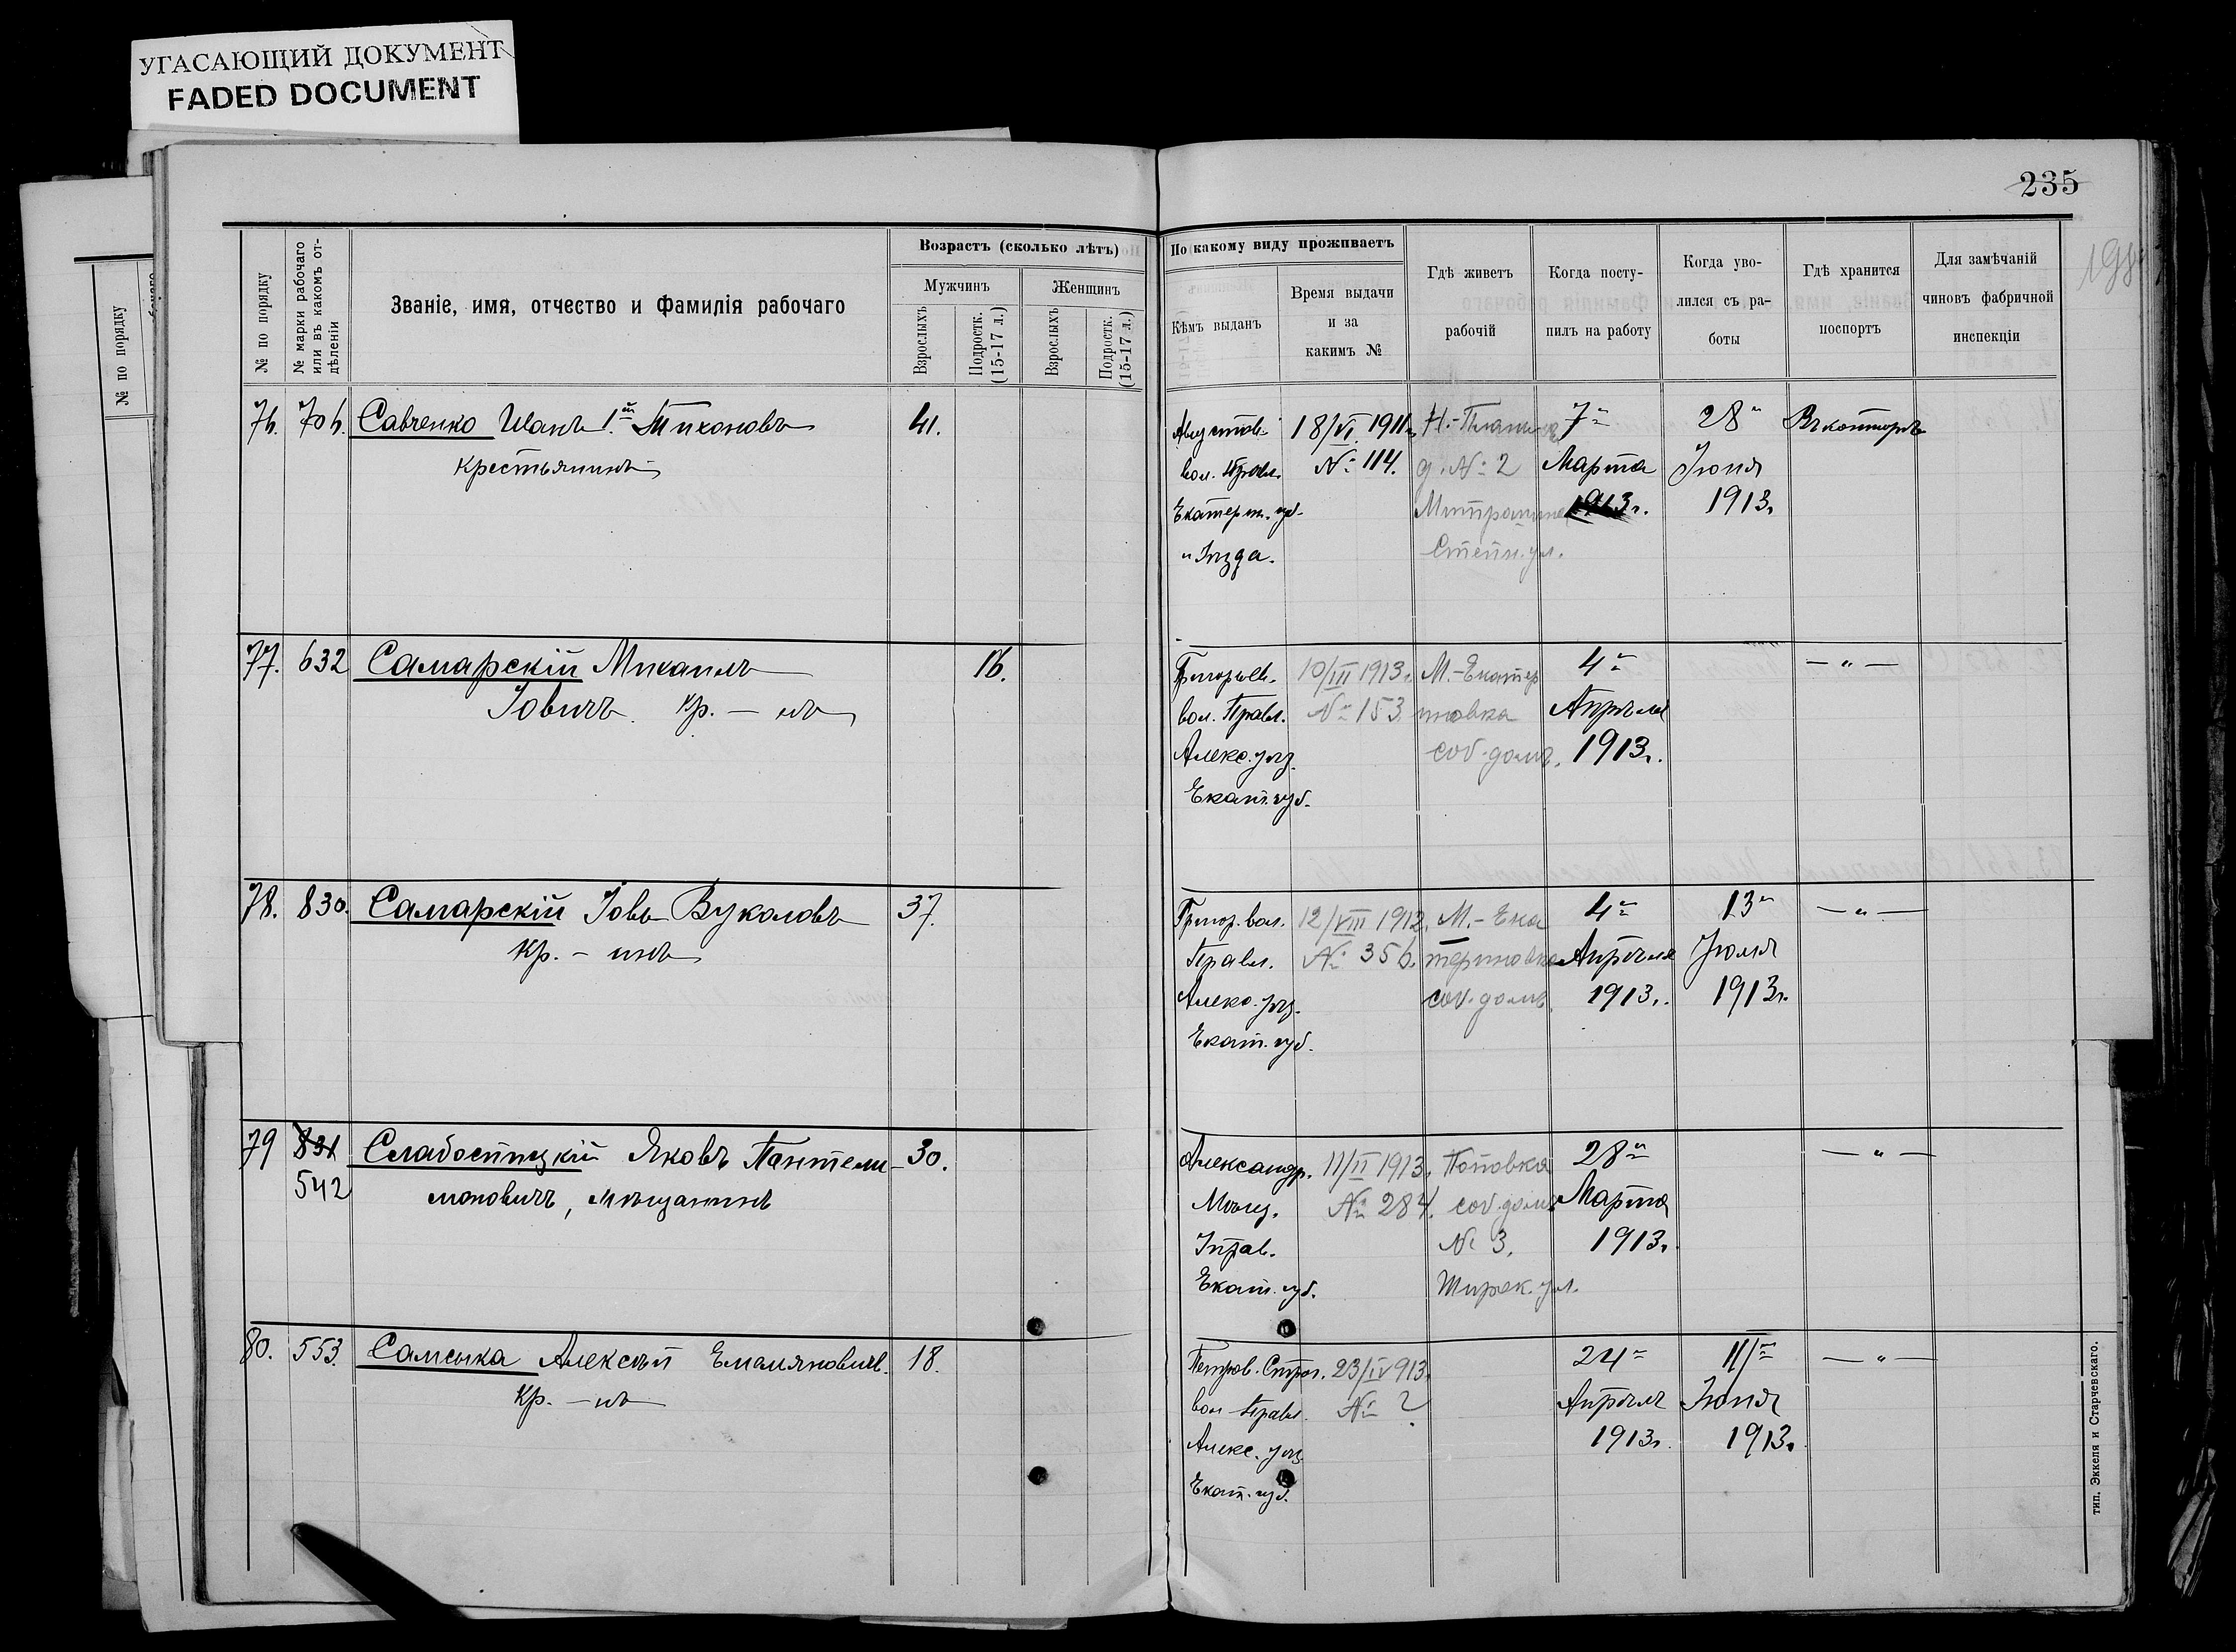 УГАСАЮЩИЙ ДОКУМЕНТ
FADED DOCUMENT
235
198
№ по порядку
№ по порядку
№ марки рабочаго
или въ какомъ от-
дѣленіи
Званіе, имя, отчество и Фамилія рабочаго
Возрастъ (сколько лѣтъ)
Мужчинъ
Женщинъ
Взрослыхъ
Подростк.
(15-17 л.)
Взрослыхъ
Подростк.
(15-17 л.)
По какому виду проживаетъ
Кѣмъ выданъ
Время выдачи
и за
какимъ №
Гдѣ живетъ
рабочій
Когда посту-
пилъ на работу
Когда уво-
лился съ ра-
боты
Гдѣ хранится
поспортъ
Для замѣчаній
чиновъ фабричной
инспекціи
76. 706. Савченко Иванъ 1й Тихоновъ 41.
крестьянинъ
Августов.
вол. Правл.
Екатерин. губ.
и Уѣзда.
18/VI 1911г.
№ 114.
д. № 2
Степн. ул.
7го
Марта
1913г.
28го
Іюня
1913г.
Въ конторѣ
77. 632 Самарскій Михаилъ 16.
Іовичъ кр.-нъ
Григорьев.
вол. Правл.
Алекс. уѣз.
Екат. губ.
10/III 1913г.
№ 153
М.-Екатер
иновка
соб. домъ.
4го
Апрѣля
1913г.
— " —
78. 830. Самарскій Іовъ Вуколовъ 37.
кр.-инъ
Григ. вол.
Правл.
Алекс. уѣз.
Екат. губ.
12/VIII 1912.
№ 356.
М.-Ека
териновка
соб. домъ.
4го
Апрѣля
1913г.
13го
Іюля
1913г.
— " —
79 831 Слабоспицкій Яковъ Пантели- 30.
542 моновичъ, мѣщанинъ
Александр.
Мѣщ.
Управ.
Екат. губ.
11/II 1913г.
№ 284.
Поповка
соб. домъ
№ 3.
28го
Марта
1913г.
— " —
80. 553. Самсыка Алексѣй Емельяновичъ. 18.
кр.-нъ
Петров.
вол. Правл.
Алекс. уѣз.
Екат. губ.
23/IV 913.
№ ?
24го
Апрѣля
1913г.
11/го
Іюня
1913г.
— " —
тип. Эккеля и Старчевскаго.